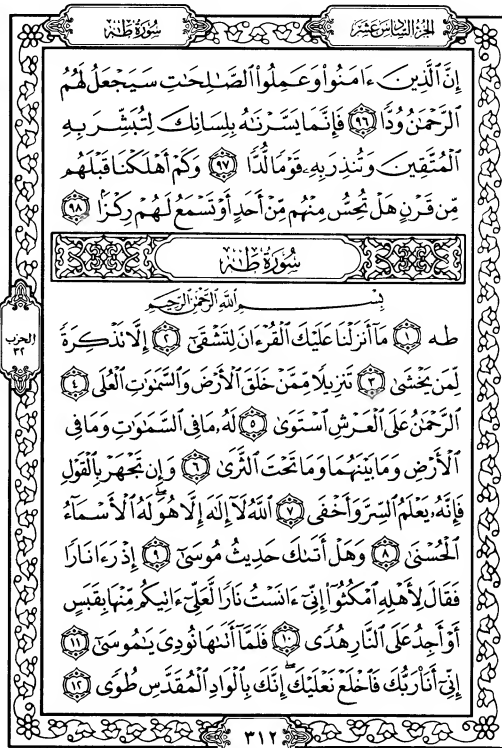 سُورَةُ طه
الجُزءُ السَّادِسَ عَشَرَ
إِنَّ ٱلَّذِينَ ءَامَنُوا۟ وَعَمِلُوا۟ ٱلصَّـٰلِحَـٰتِ سَيَجْعَلُ لَهُمُ
ٱلرَّحْمَـٰنُ وُدًّا ٩٦ فَإِنَّمَا يَسَّرْنَـٰهُ بِلِسَانِكَ لِتُبَشِّرَ بِهِ
ٱلْمُتَّقِينَ وَتُنذِرَ بِهِۦ قَوْمًا لُّدًّا ٩٧ وَكَمْ أَهْلَكْنَا قَبْلَهُم
مِّن قَرْنٍ هَلْ تُحِسُّ مِنْهُم مِّنْ أَحَدٍ أَوْ تَسْمَعُ لَهُمْ رِكْزًۢا ٩٨
سُورَةُ طه
بِسْمِ ٱللَّهِ ٱلرَّحْمَـٰنِ ٱلرَّحِيمِ
طه ١ مَآ أَنزَلْنَا عَلَيْكَ ٱلْقُرْءَانَ لِتَشْقَىٰٓ ٢ إِلَّا تَذْكِرَةً
لِّمَن يَخْشَىٰ ٣ تَنزِيلًا مِّمَّنْ خَلَقَ ٱلْأَرْضَ وَٱلسَّمَـٰوَٰتِ ٱلْعُلَى ٤
ٱلرَّحْمَـٰنُ عَلَى ٱلْعَرْشِ ٱسْتَوَىٰ ٥ لَهُۥ مَا فِى ٱلسَّمَـٰوَٰتِ وَمَا فِى
ٱلْأَرْضِ وَمَا بَيْنَهُمَا وَمَا تَحْتَ ٱلثَّرَىٰ ٦ وَإِن تَجْهَرْ بِٱلْقَوْلِ
فَإِنَّهُۥ يَعْلَمُ ٱلسِّرَّ وَأَخْفَى ٧ ٱللَّهُ لَآ إِلَـٰهَ إِلَّا هُوَۖ لَهُ ٱلْأَسْمَآءُ
ٱلْحُسْنَىٰ ٨ وَهَلْ أَتَىٰكَ حَدِيثُ مُوسَىٰٓ ٩ إِذْ رَءَا نَارًا
فَقَالَ لِأَهْلِهِ ٱمْكُثُوٓا۟ إِنِّىٓ ءَانَسْتُ نَارًا لَّعَلِّىٓ ءَاتِيكُم مِّنْهَا بِقَبَسٍ
أَوْ أَجِدُ عَلَى ٱلنَّارِ هُدًى ١٠ فَلَمَّآ أَتَىٰهَا نُودِىَ يَـٰمُوسَىٰٓ ١١
إِنِّىٓ أَنَا۠ رَبُّكَ فَٱخْلَعْ نَعْلَيْكَۖ إِنَّكَ بِٱلْوَادِ ٱلْمُقَدَّسِ طُوًى ١٢
الحزب
٣٢
٣١٢